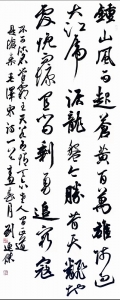 钟山风雨起苍黄百万雄师过
大江虎踞龙盘今胜昔天翻地
覆慨而慷宜将剩勇追穷寇
不可沽名学霸王天若有情天亦老人间正道
是沧桑毛泽东诗一首